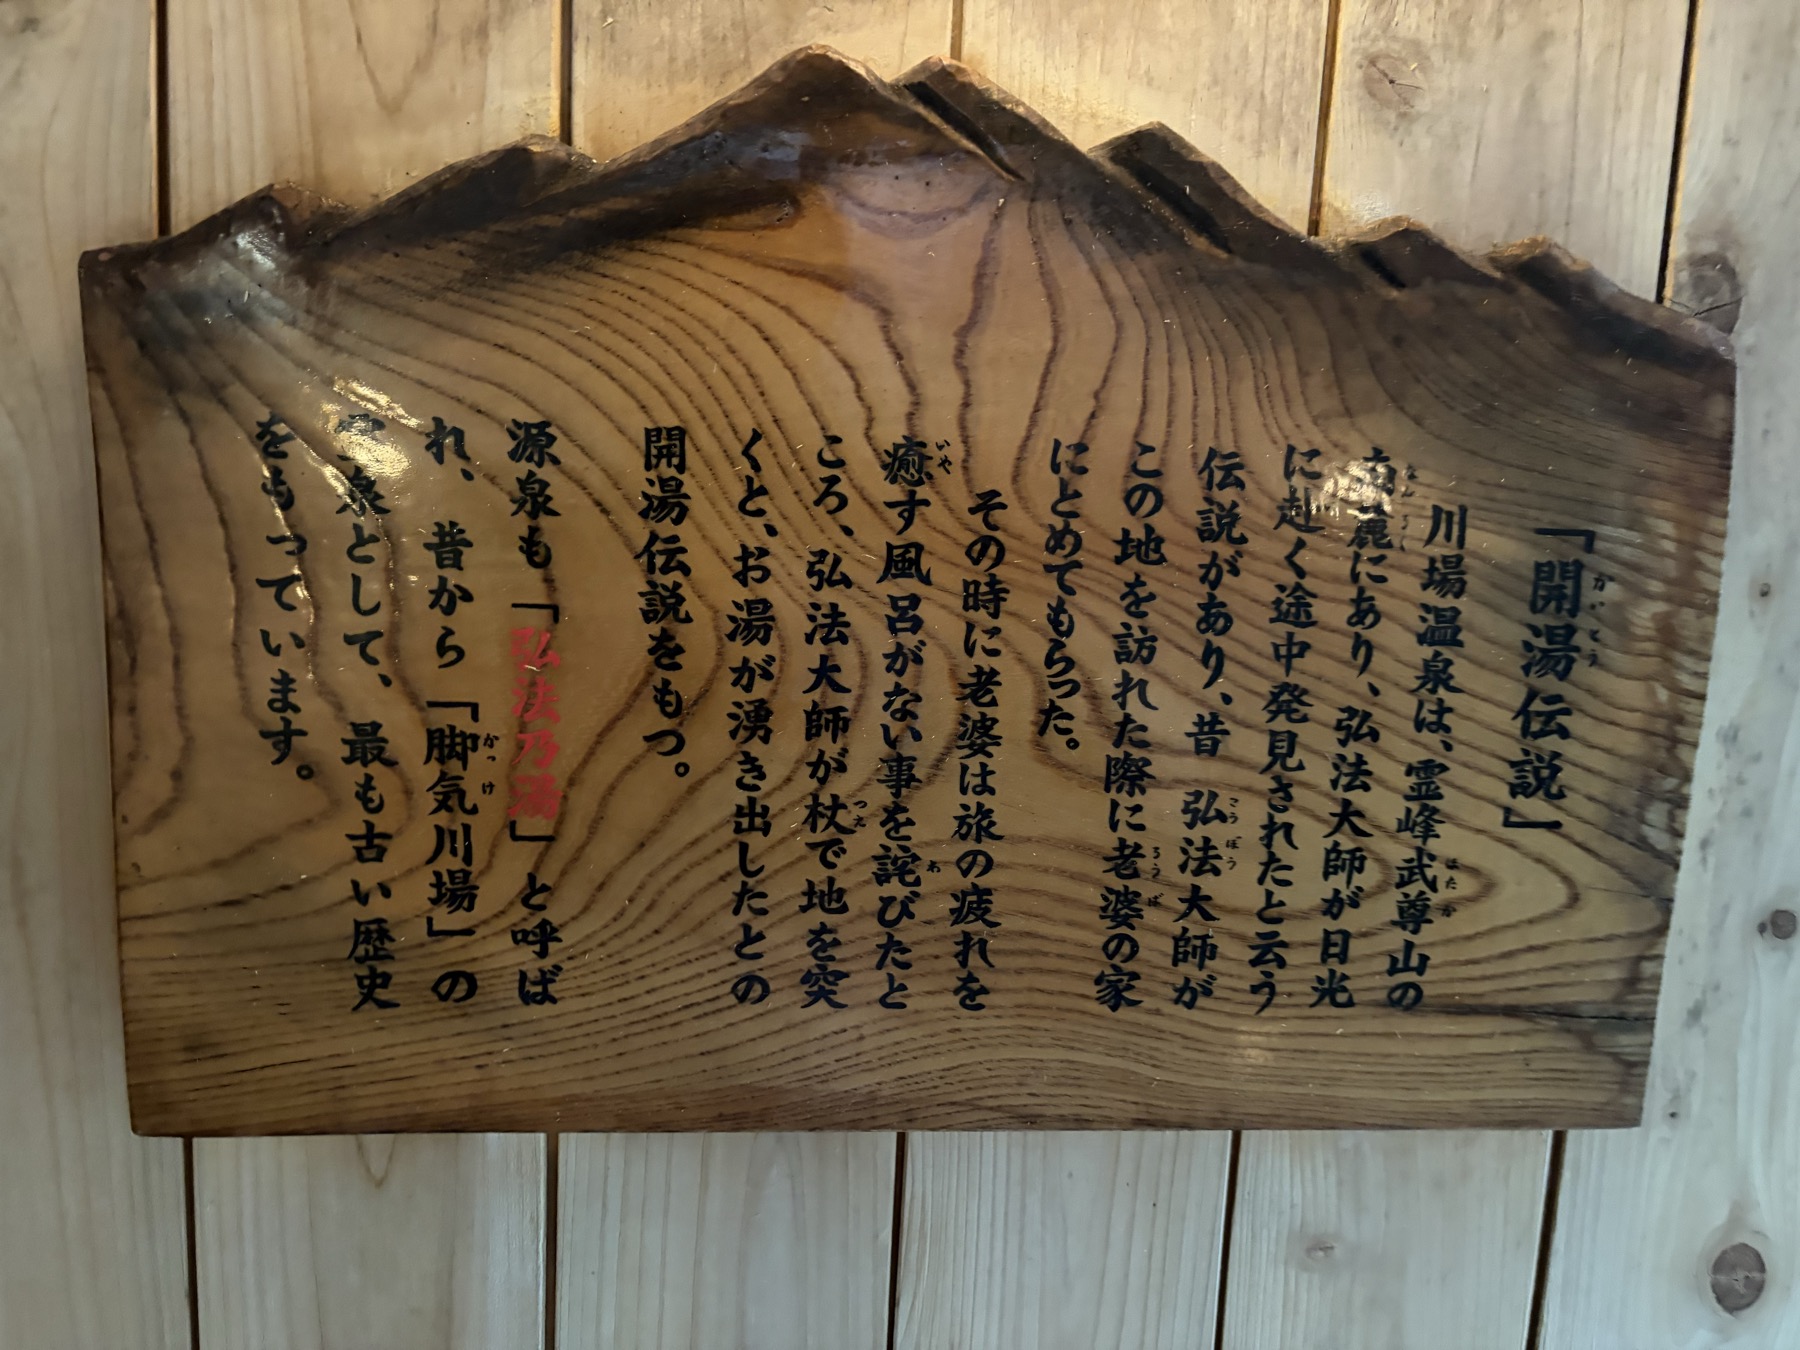 「開湯伝説」
川場温泉は、霊峰武尊山の
南麓にあり、弘法大師が日光
に赴く途中発見されたと云う
伝説があり、昔 弘法大師が
この地を訪れた際に老婆の家
にとめてもらった。
その時に老婆は旅の疲れを
癒す風呂がない事を詫びたと
ころ、弘法大師が杖で地を突
くと、お湯が湧き出したとの
開湯伝説をもつ。
源泉も「弘法乃湯」と呼ば
れ、昔から「脚気川場」の
霊泉として、最も古い歴史
をもっています。